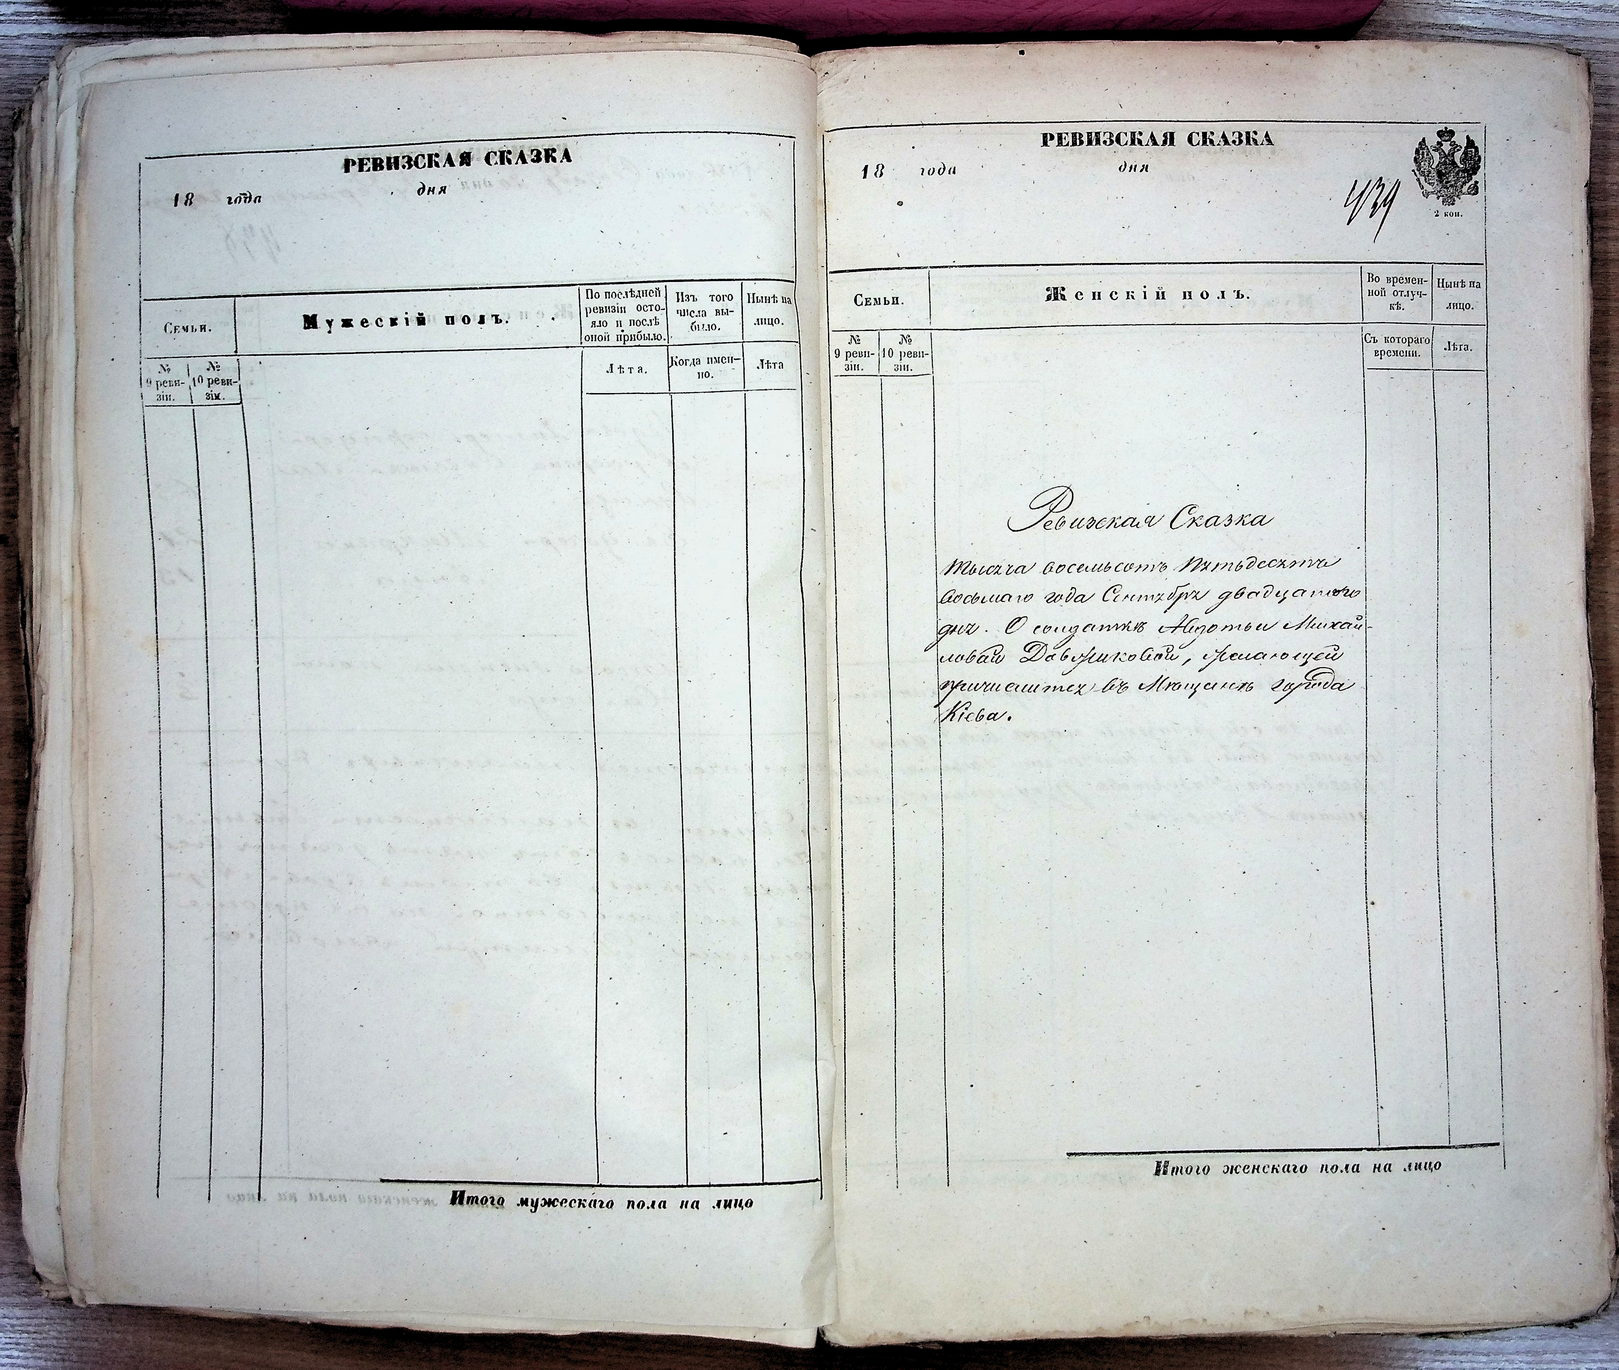 РЕВИЗСКАЯ СКАЗКА
18 года дня
Семьи.
Мужескій полъ.
По послѣдней ревизіи состояло и послѣ оной прибыло.
Изъ того числа выбыло.
Нынѣ на лицо.
№ 9 ревизіи.
№ 10 ревизіи.
Лѣта.
Когда именно.
Лѣта
Итого мужескаго пола на лицо
РЕВИЗСКАЯ СКАЗКА
18 года дня
439
2 коп.
Семьи.
Женскій полъ.
Во временной отлучкѣ.
Нынѣ на лицо.
№ 9 ревизіи.
№ 10 ревизіи.
Съ котораго времени.
Лѣта.
Ревизская Сказка
тысяча восемьсотъ пятьдесятъ
восьмаго года Сентября двадцатого
дня. О солдаткѣ Авдотьи Михай-
ловой, желающей
причислится въ Мещане города
Кіева.
Итого женскаго пола на лицо